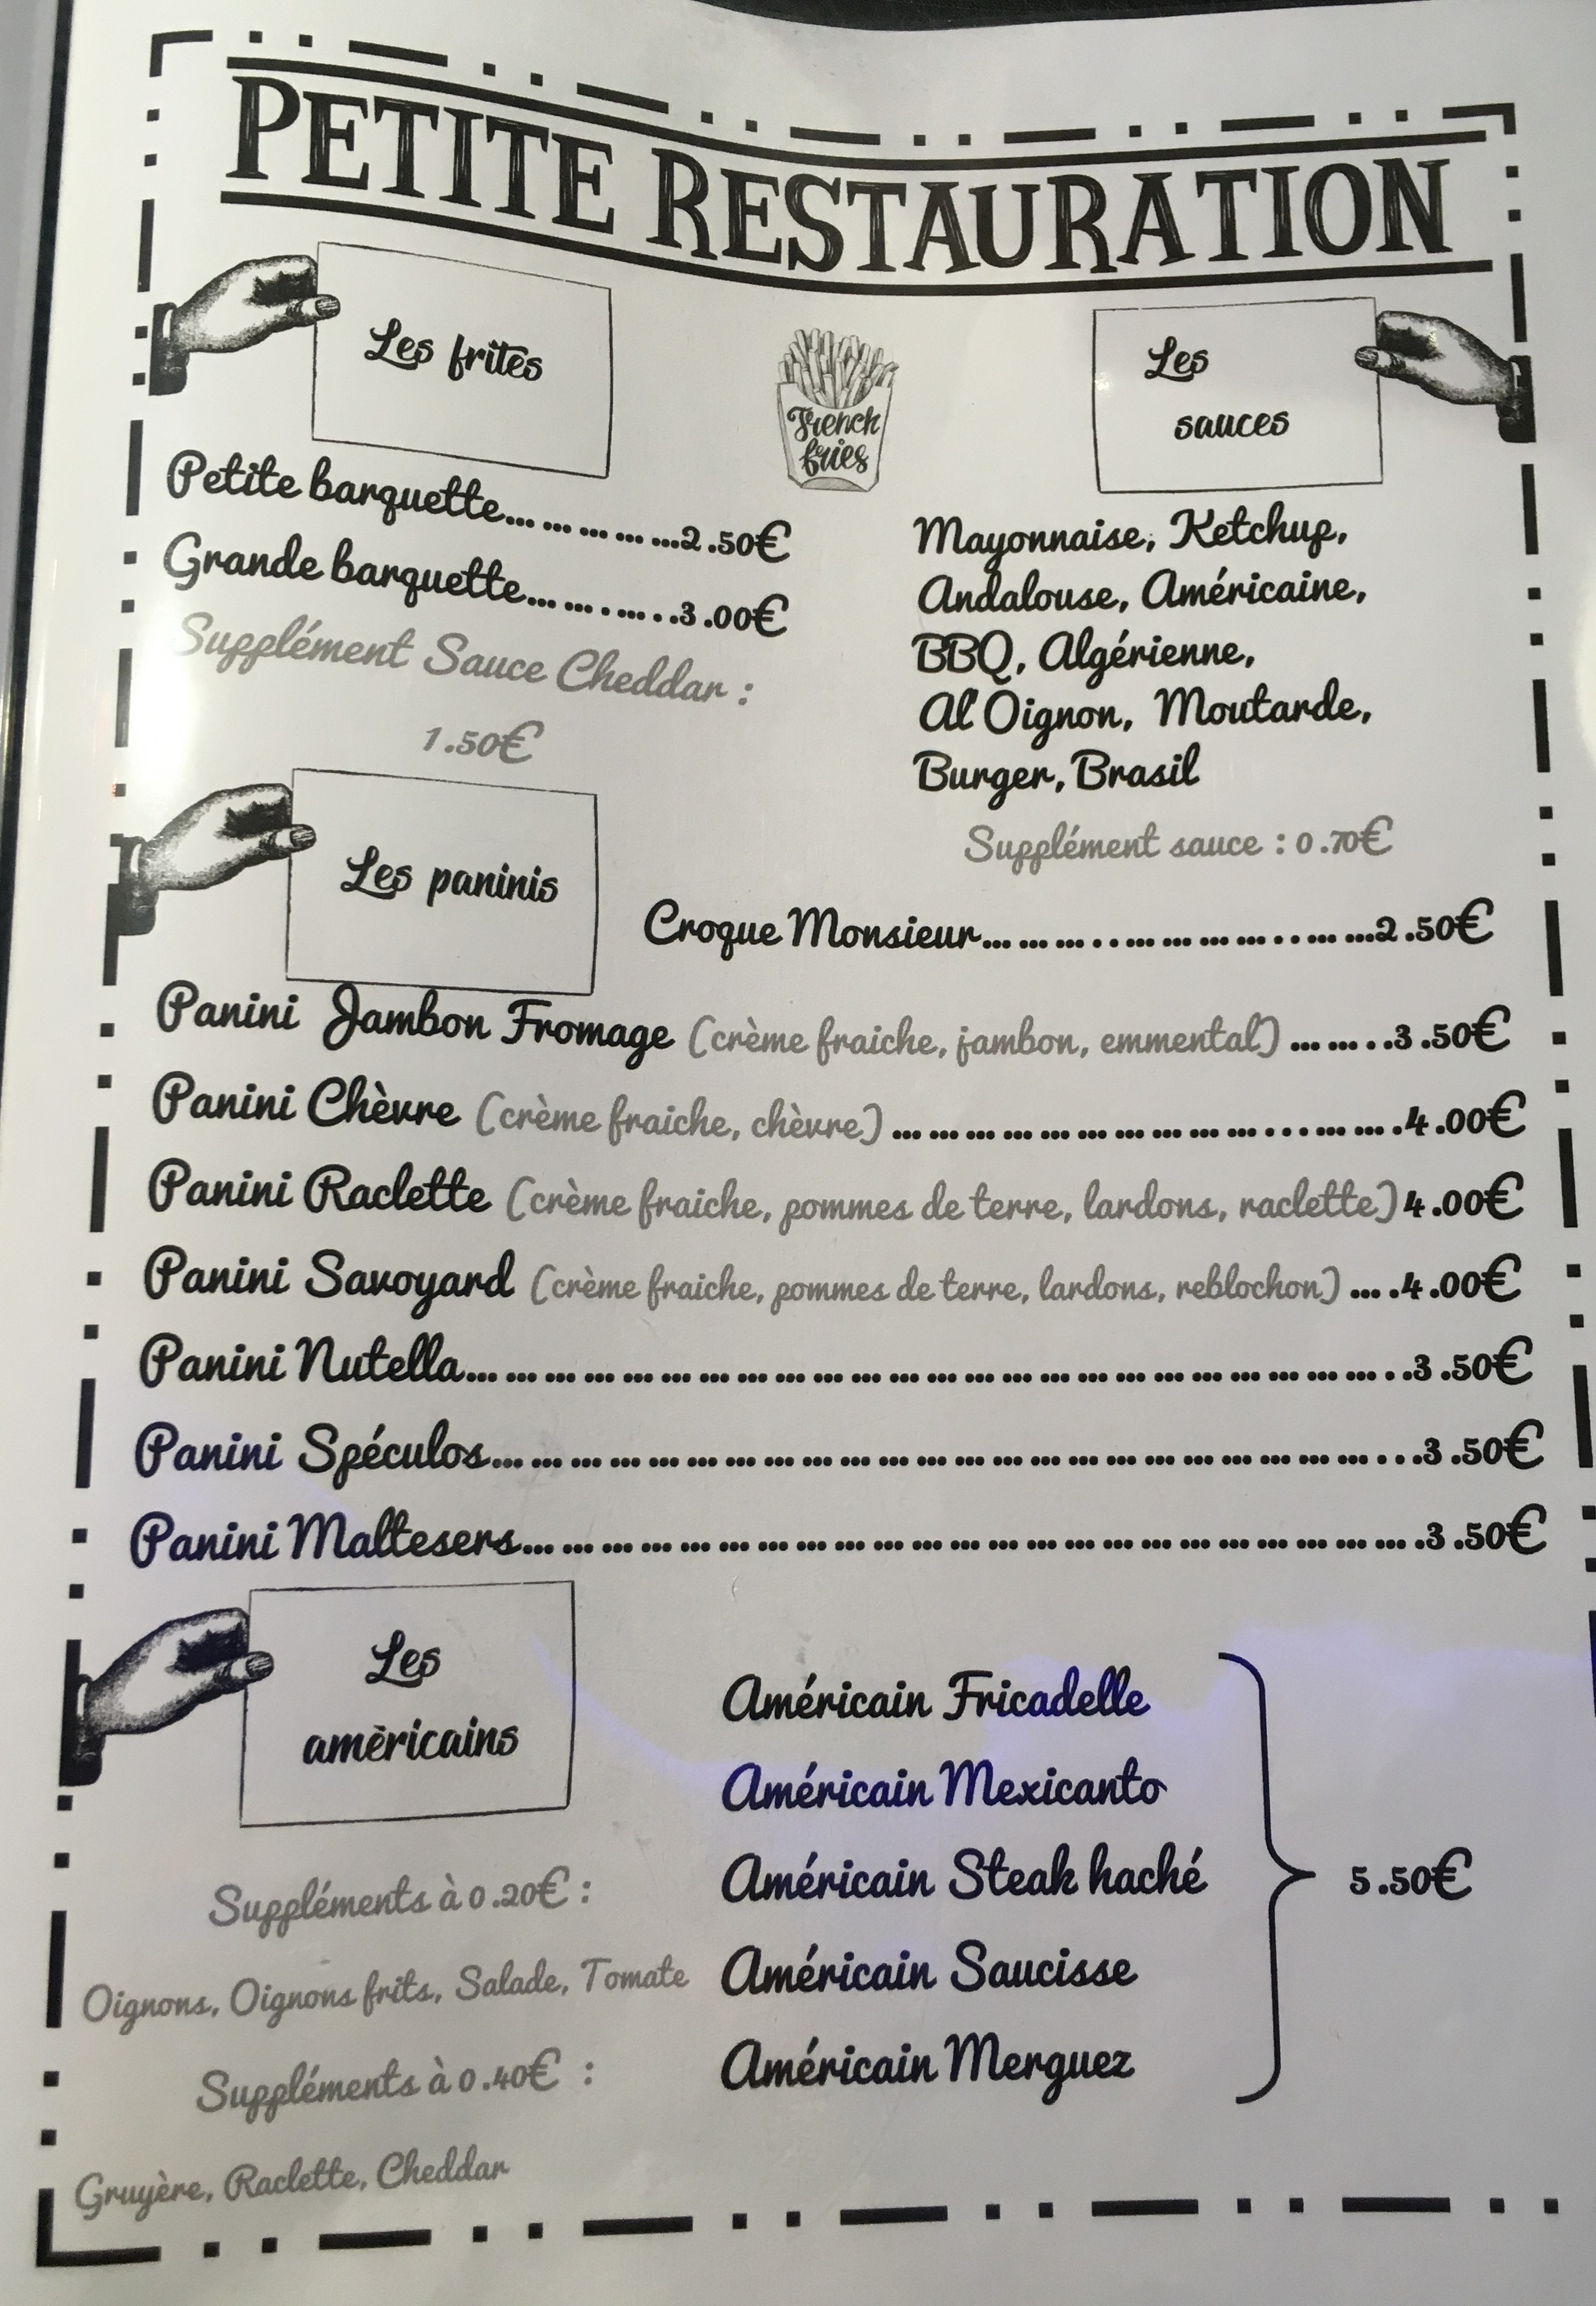 PETITE RESTAURATION
Les frites
French
fries
Les
sauces
Petite barquette... ... ... ... ...2.50€
Grande barquette... ... . ... . .3.00€
Supplément Sauce Cheddar :
1.50€
Mayonnaise, Ketchup,
Andalouse, Américaine,
BBQ, Algérienne,
Al'Oignon, Moutarde,
Burger, Brasil
Supplément sauce : 0.70€
Les paninis
Croque Monsieur... ... ... . . ... ... ... ... . . ... ...2.50€
Panini Jambon Fromage (crème fraiche, jambon, emmental) ... ... . .3.50€
Panini Chèvre (crème fraiche, chèvre) ... ... ... ... ... ... ... ... ... ... . . ... ... .4.00€
Panini Raclette (crème fraiche, pommes de terre, lardons, raclette) 4.00€
Panini Savoyard (crème fraiche, pommes de terre, lardons, reblochon) ... .4.00€
Panini Nutella... ... ... ... ... ... ... ... ... ... ... ... ... ... ... ... ... ... ... ... ... ... ... . .3.50€
Panini Spéculos... ... ... ... ... ... ... ... ... ... ... ... ... ... ... ... ... ... ... ... ... ... ... . .3.50€
Panini Maltesers... ... ... ... ... ... ... ... ... ... ... ... ... ... ... ... ... ... ... ... ... ... ... .3.50€
Les
amèricains
Américain Fricadelle
Américain Mexicanto
Américain Steak haché
5.50€
Américain Saucisse
Américain Merguez
Suppléments à 0.20€ :
Oignons, Oignons frits, Salade, Tomate
Suppléments à 0.40€ :
Gruyère, Raclette, Cheddar